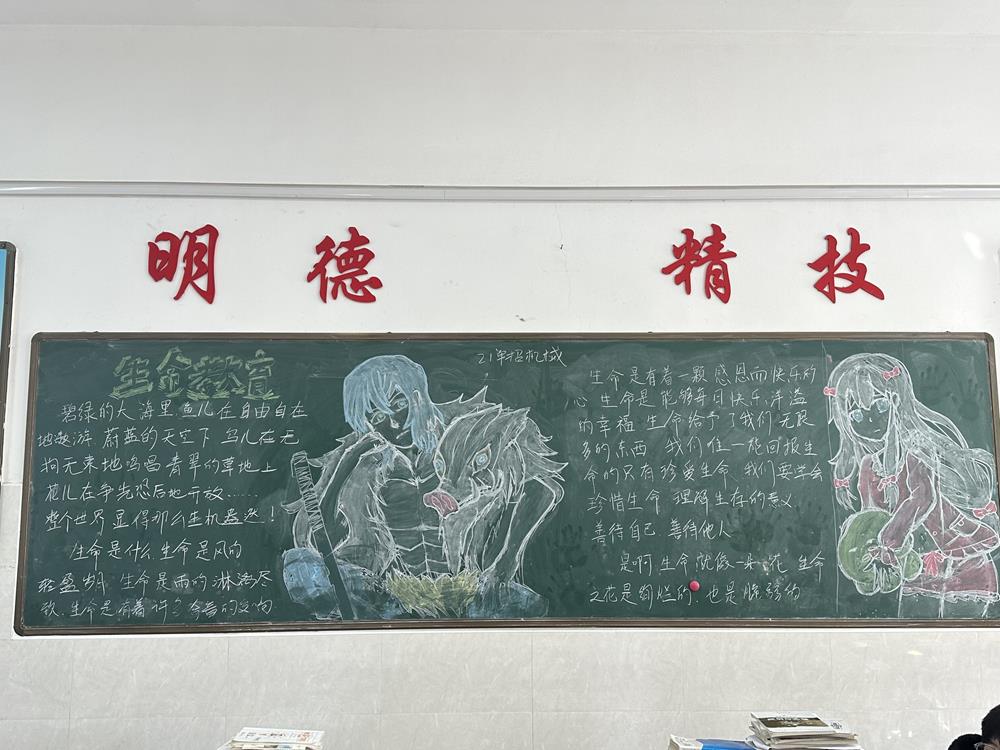 明德 精技
生命教育
21年招机械
碧绿的大海里 鱼儿在自由自在
地遨游 蔚蓝的天空下 鸟儿在无
拘无束地鸣唱 青翠的草地上
花儿在争先恐后地开放……
整个世界显得那么生机盎然!
生命是什么 生命是风的
轻盈 生命是雨的淋漓尽
致 生命是有着
生命是有着一颗感恩而快乐的
心 生命是能够每日快乐 洋溢
的幸福 生命给予了我们无限
多的东西 我们 一能回报生
命的只有珍爱生命 我们要学会
珍惜生命 理解生存的意义
善待自己 善待他人
是啊 生命就像一朵花 生命
之花是绚烂的 也是